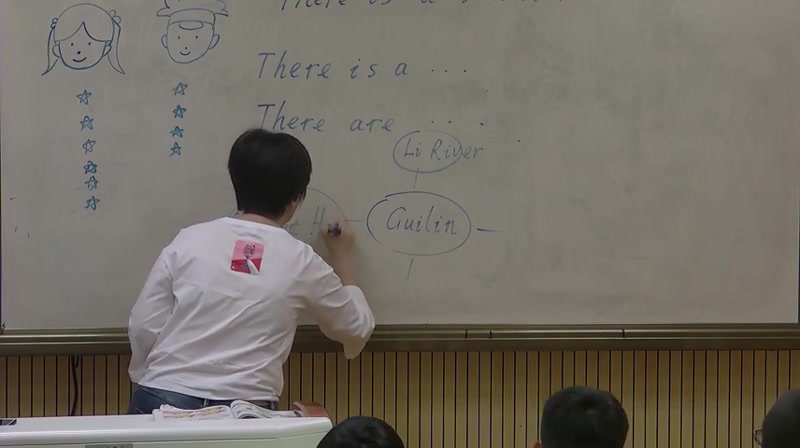 There is a
There is a ...
There are ...
Li River
Guilin